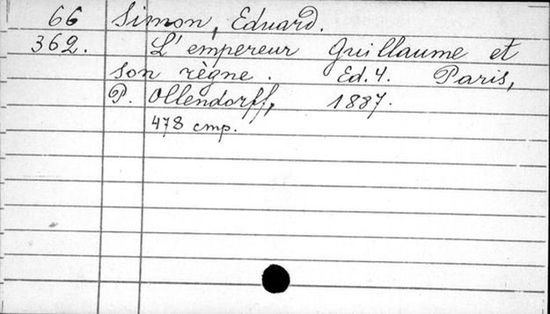 66 Simon, Eduard.
362. L'empereur Guillaume et
son règne. Ed. 4. Paris,
P. Ollendorff, 1887.
478 cmp.